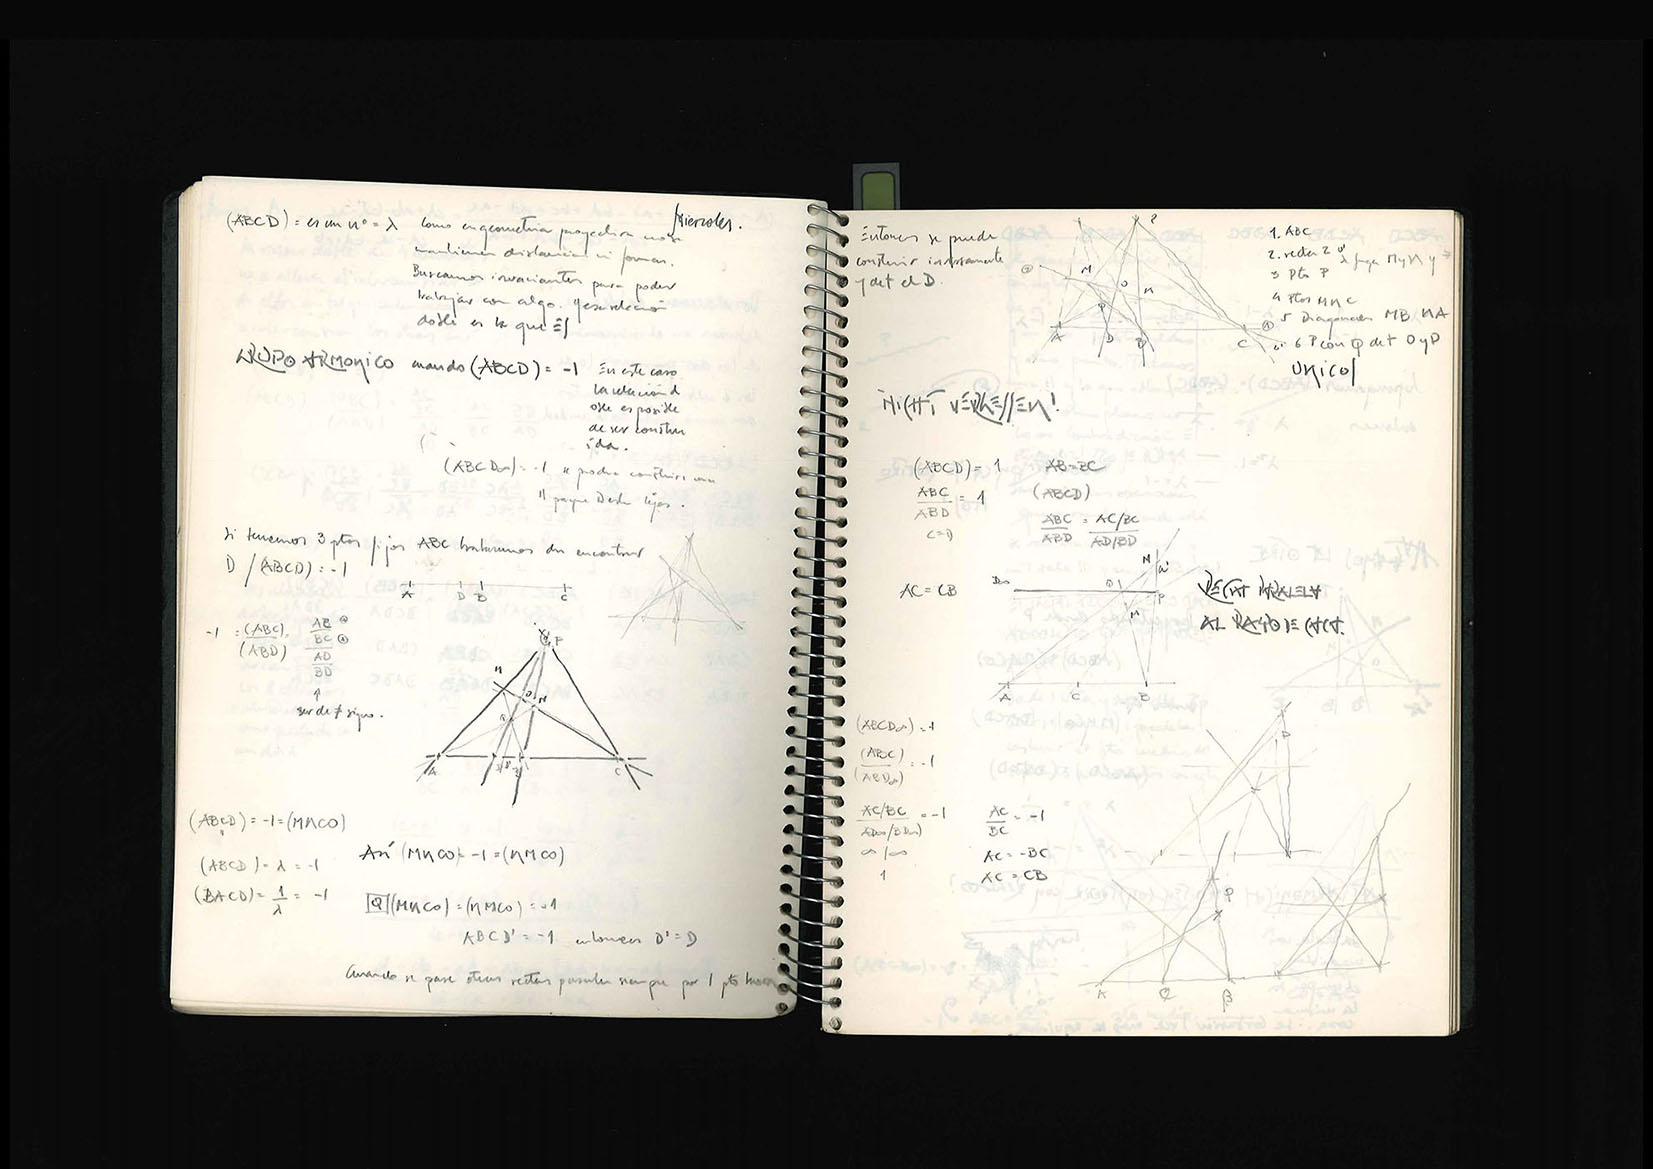 Miercoles.
(ABCD) = es un nº = λ como en geometria proyectiva no se
mantienen distancias ni formas.
Buscamos invariantes para poder
trabajar con algo. y esa relación
doble es la que ES
GRUPO ARMONICO cuando (ABCD) = -1 En este caso
la relacion d
oble es posible
de ser constru
ida.
(ABCD∞) = -1 se podra construir con
// porque D esta lejos.
Si tenemos 3 ptos fijos ABC trataremos de encontrar
D / (ABCD) = -1
A D B C
-1 = (ABC) AB
(ABD) BC
AD
BD
ser de ≠ signo.
P
M
O
N
A
C
(ABCD) = -1 = (MNCO)
(ABCD) = λ = -1
(BACD) = 1/λ = -1
Así (MNCO) = -1 = (NMCO)
Q (MNCO) = (NMCO) = -1
ABCD' = -1 entonces D' = D
Cuando se pase otras rectas pasarán siempre por 1 pto
Entonces se puede
construir
y det el D.
P
M
O
N
A D B C
1. ABC
2. rectas
3 Pto P
4 Ptos MNC
5 Diagonales MB NA
6 P con Q det O y D
UNICO!
NICHT VERGESSEN!
(ABCD) = 1 AB = BC
ABC = 1 (ABCD)
ABD
ABC = AC/BC
ABD AD/BD
AC = CB
D∞
N
P
M
A C B
RECTA PARALELA
AL RAYO DE
(ABCD∞) = -1
(ABC) = -1
(ABD∞)
AC/BC = -1
AD∞/BD∞
∞/∞
1
AC = -1
BC
AC = -BC
AC = CB
P
A C B